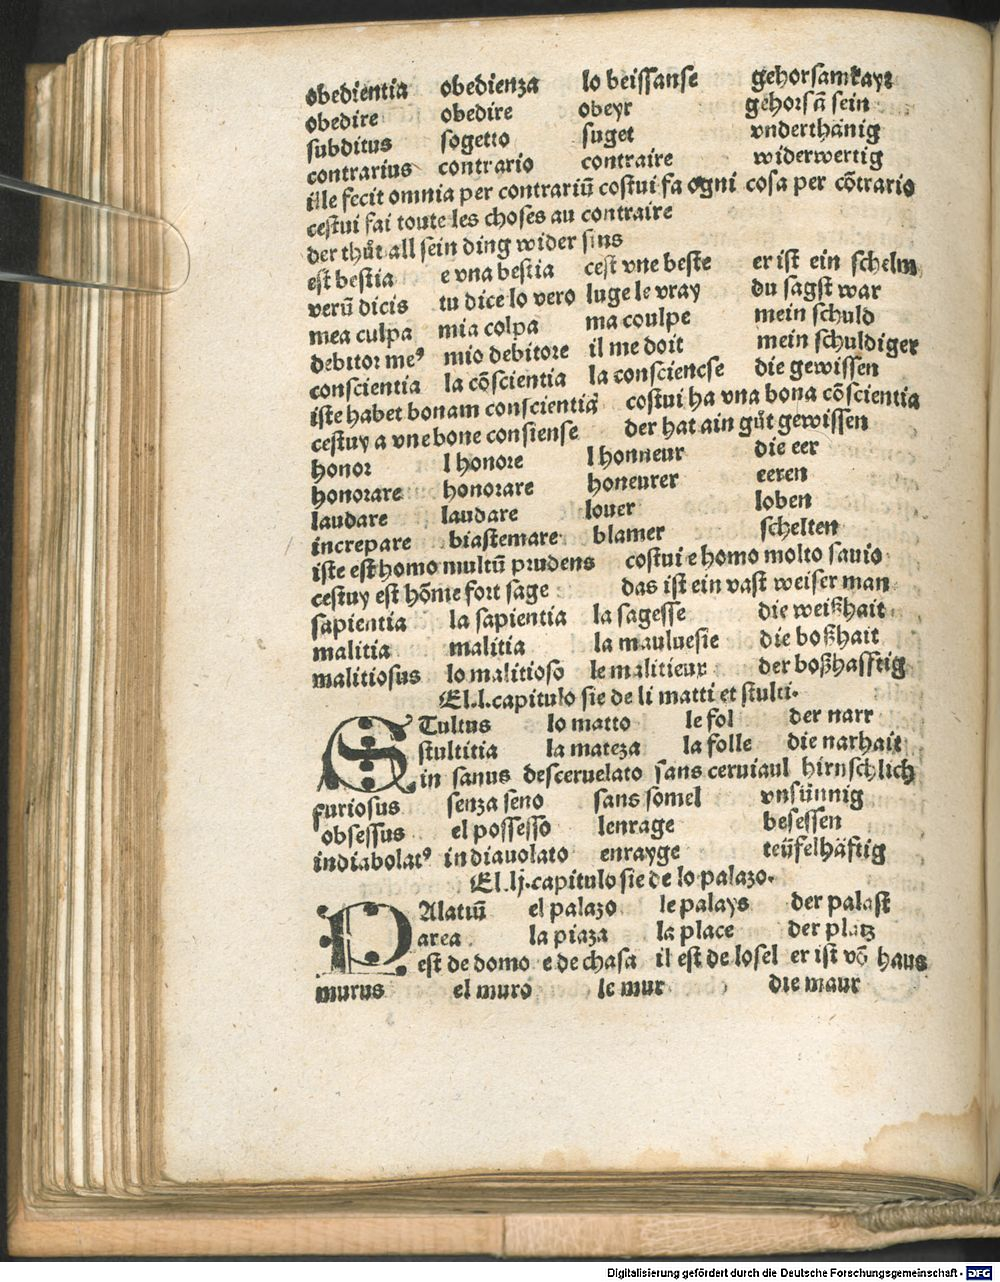 obedientia obedienza lo beissanse gehorsamkayt
obedire obedire obeyr gehorsā sein
subditus sogetto suget vnderthänig
contrarius contrario contraire widerwertig
ille fecit omnia per contrariū costui fa ogni cosa per cōtrario
cestui fai toute les choses au contraire
der thůt all sein ding wider sins
est bestia e vna bestia cest vne beste er ist ein schelm
verū dicis tu dice lo vero luge le vray du sagst war
mea culpa mia colpa ma coulpe mein schuld
debitor meꝰ mio debitore il me doit mein schuldiger
conscientia la cōscientia la consciencse die gewissen
iste habet bonam conscientiā costui ha vna bona cōscientia
cestuy a vne bone consiense der hat ain gůt gewissen
honor l honore l honneur die eer
honorare honorare honeurer eeren
laudare laudare louer loben
increpare biastemare blamer schelten
iste est homo multū prudens costui e homo molto sauio
cestuy est hōme fort sage das ist ein vast weiser man
sapientia la sapientia la sagesse die weißhait
malitia malitia la mauluesie die boßhait
malitiosus lo malitioso le malitieur der boßhafftig
El.l.capitulo sie de li matti et stulti.
STultus lo matto le fol der narr
stultitia la mateza la folle die narhait
in sanus desceruelato sans ceruiaul hirnschlich
furiosus senza seno sans somel vnsünnig
obsessus el possesso lenrage besessen
indiabolatꝰ indiauolato enrayge teüfelhäftig
El.lj.capitulo sie de lo palazo.
PAlatiū el palazo le palays der palast
area la piaza la place der platz
est de domo e de chasa il est de losel er ist vō haus
murus el muro le mur die maur
Digitalisierung gefördert durch die Deutsche Forschungsgemeinschaft - DFG